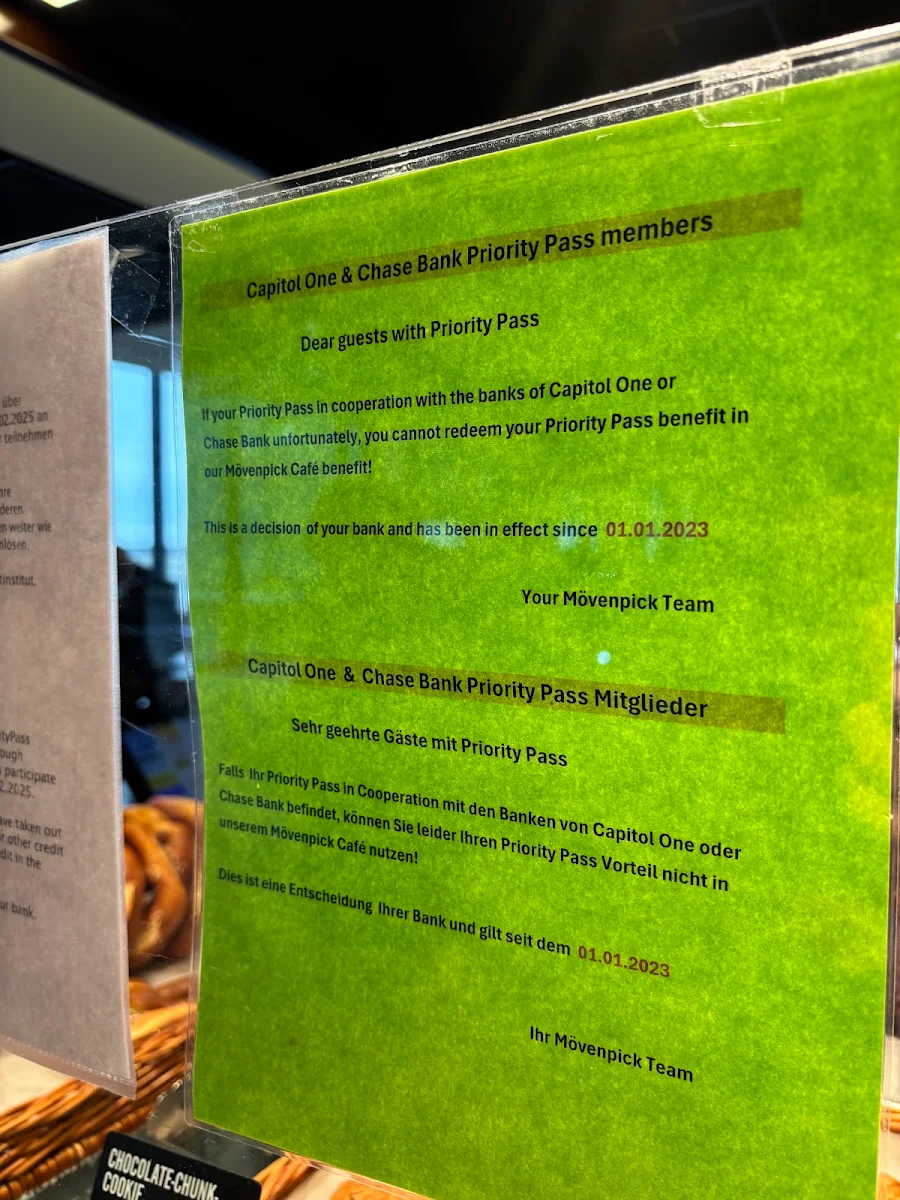 über
02.2025 an
teilnehmen
deren
en weiter wie
nlösen.
tinstitut.
ityPass
ough
participate
2.2025.
ave taken out
r other credit
edit in the
ur bank.
Capitol One & Chase Bank Priority Pass members
Dear guests with Priority Pass
If your Priority Pass in cooperation with the banks of Capitol One or
Chase Bank unfortunately, you cannot redeem your Priority Pass benefit in
our Mövenpick Café benefit!
This is a decision of your bank and has been in effect since 01.01.2023
Your Mövenpick Team
Capitol One & Chase Bank Priority Pass Mitglieder
Sehr geehrte Gäste mit Priority Pass
Falls Ihr Priority Pass in Cooperation mit den Banken von Capitol One oder
Chase Bank befindet, können Sie leider Ihren Priority Pass Vorteil nicht in
unserem Mövenpick Café nutzen!
Dies ist eine Entscheidung Ihrer Bank und gilt seit dem 01.01.2023
Ihr Mövenpick Team
CHOCOLATE-CHUNK-
COOKIE